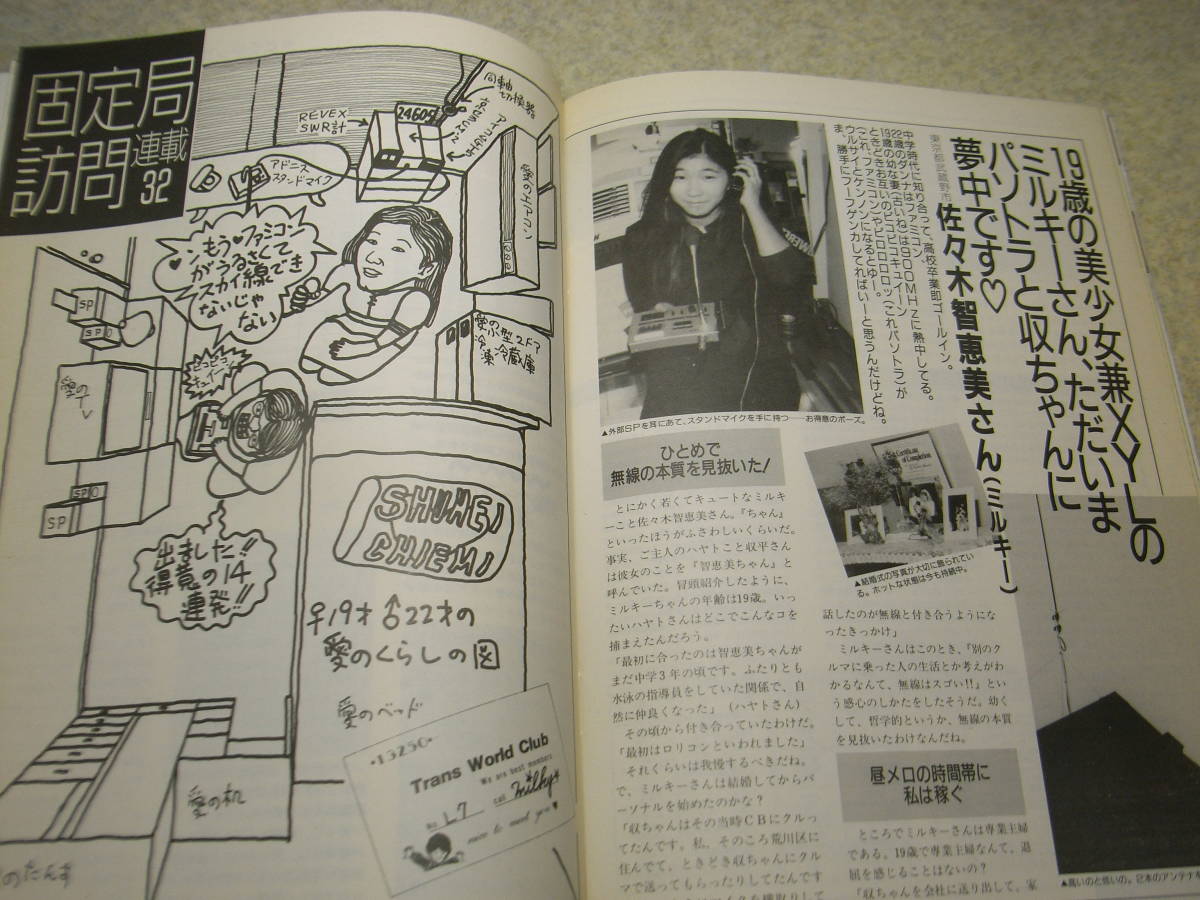 固定局
訪問
連載
32
REVEX
SWR計
24605
同軸
切換器
アドニス
スタンドマイク
愛のエアコン
んもう♥ファミコン
がうるさくて
スカイ線でき
ないじゃ
ない
愛の小型2ドア
冷凍冷蔵庫
SP
SP
愛のTV
ピコピコ
キュイーン
SP
SP
出ました!!
得意の14
連発!!
SHUHEI
CHIEMI
♀19才 ♂22才の
愛のくらしの図
愛のベッド
愛の机
のたんす
・13250・
Trans World Club
We are best members
No. L7
call Milky
nice to meet you
19歳の美少女兼XYLの
ミルキーさん、ただいま
パソトラと収ちゃんに
夢中です♡
東京都武蔵野市
佐々木智恵美さん(ミルキー)
中学時代に知り合って、高校卒業即ゴールイン。
22歳のダンナはファミコン、
19歳の幼な妻(古いね)は900MHzに熱中してる。
ときどきお互いのピコピコキュイーン
(これ、ファミコン)やピロロロロッ(これパソトラ)が
ウルサイとケンノンになるとゆー。
ま、勝手にフーフゲンカしてればいーと思うんだけどね。
▲外部SPを耳にあて、スタンドマイクを手に持つ――お得意のポーズ。
ひとめで
無線の本質を見抜いた!
とにかく若くてキュートなミルキ
ーこと佐々木智恵美さん。『ちゃん』
といったほうがふさわしいくらいだ。
事実、ご主人のハヤトこと収平さん
は彼女のことを『智恵美ちゃん』と
呼んでいた。冒頭紹介したように、
ミルキーちゃんの年齢は19歳。いっ
たいハヤトさんはどこでこんなコを
捕まえたんだろう。
「最初に合ったのは智恵美ちゃんが
まだ中学3年の頃です。ふたりとも
水泳の指導員をしていた関係で、自
然に仲良くなった」(ハヤトさん)
その頃から付き合っていたわけだ。
「最初はロリコンといわれました」
それくらいは我慢するべきだね。
で、ミルキーさんは結婚してからパ
ーソナルを始めたのかな?
「収ちゃんはその当時CBにクルッ
てたんです。私、そのころ荒川区に
住んでて、ときどき収ちゃんにクル
マで送ってもらったりしてたんです
Certificate
of Completion
▲結婚式の写真が大切に飾られてい
る。ホットな状態は今も持続中。
話したのが無線と付き合うようにな
ったきっかけ」
ミルキーさんはこのとき、「別のク
ルマに乗った人の生活とか考えがわ
かるなんて、無線はスゴい!!」とい
う感心のしかたをしたそうだ。幼く
して、哲学的というか、無線の本質
を見抜いたわけなんだね。
昼メロの時間帯に
私は稼ぐ
ところでミルキーさんは専業主婦
である。19歳で専業主婦なんて、退
屈を感じることはないの?
「収ちゃんを会社に送り出して、家
▲高いのと低いの。2本のアンテナ